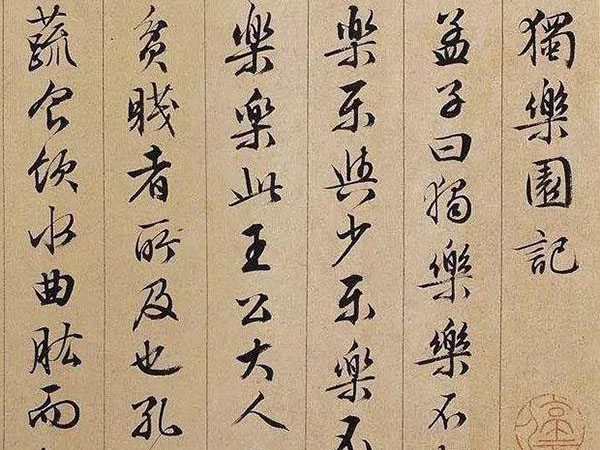 獨樂園記
孟子曰獨樂樂不
樂樂與少樂樂不
樂樂此王公大人
貧賤者所及也孔
蔬食飲水曲肱而